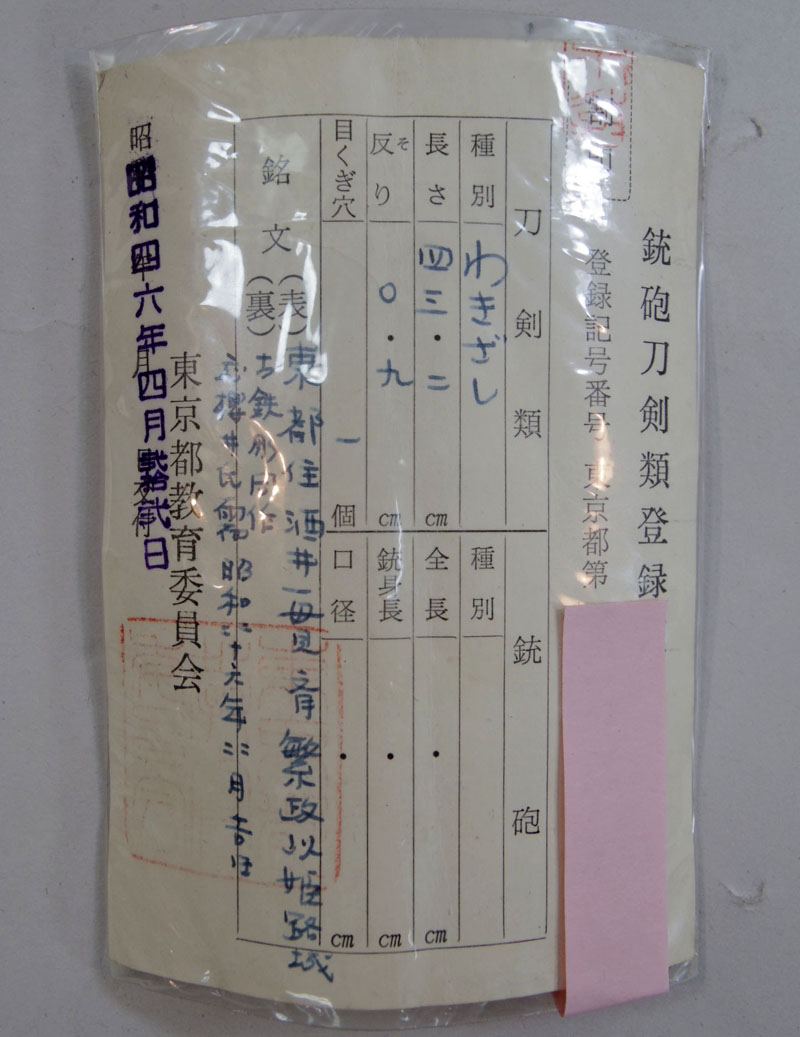 銃砲刀剣類登録
登録記号番号 東京都第
刀剣類
種別 わきざし
長さ 四三・二cm
反り 〇・九cm
そ
目くぎ穴 一個
銘文
(表)東都住酒井一貫斎繁政以姫路城
古鉄
(裏)応桜井氏需昭和四十六年二月吉日
銃砲
種別
全長 ・cm
銃身長 ・cm
口径 ・cm
昭和四六年四月弐拾弐日
東京都教育委員会